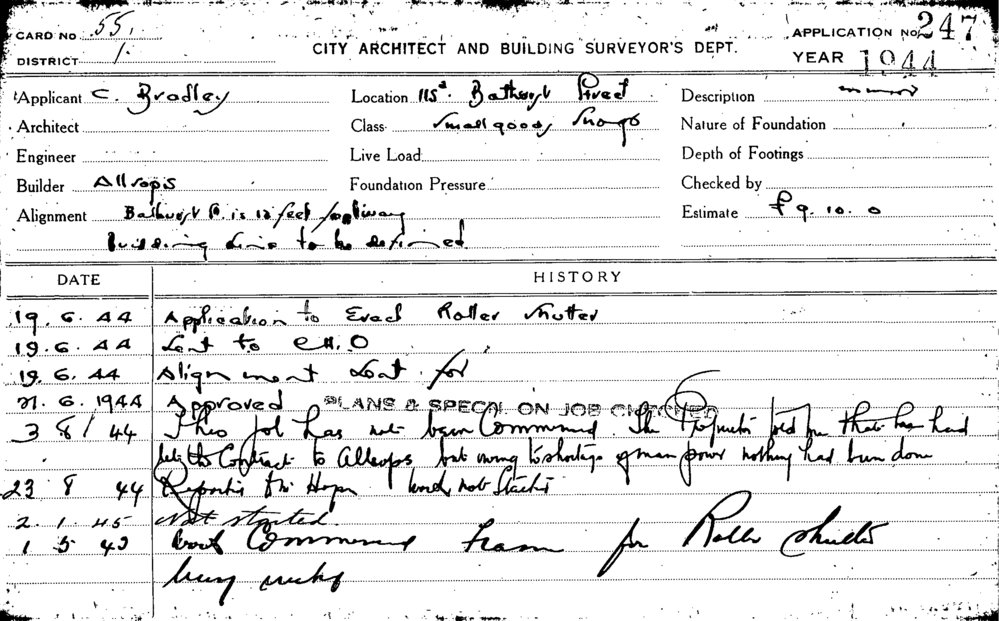 CARD No 55.
DISTRICT 1.
CITY ARCHITECT AND BUILDING SURVEYOR'S DEPT.
APPLICATION No. 247
YEAR 1944
Applicant C. Bradley
Location 115a. Bathurst Street
Description
Architect
Class Smallgoods Shop
Nature of Foundation
Engineer
Live Load
Depth of Footings
Builder Allsops
Foundation Pressure
Checked by
Alignment Bathurst St. is 12 feet footway
Building Line to be defined
Estimate £9. 10. 0
DATE HISTORY
19. 6. 44 Application to Erect Roller Shutter
19. 6. 44 Sent to C.H.O
19. 6. 44 Alignment Sent for
21. 6. 1944 Approved PLANS & SPECN. ON JOB CHECKED
3 8/ 44 This job has not been Commenced. The Proprietor told me that he had
let the Contract to Allsops but owing to shortage of man power nothing had been done
23 8 44 Reported Mr Hope work not Started
2. 1. 45 Not started.
1 5 45 work Commenced frame for Roller Shutter
being